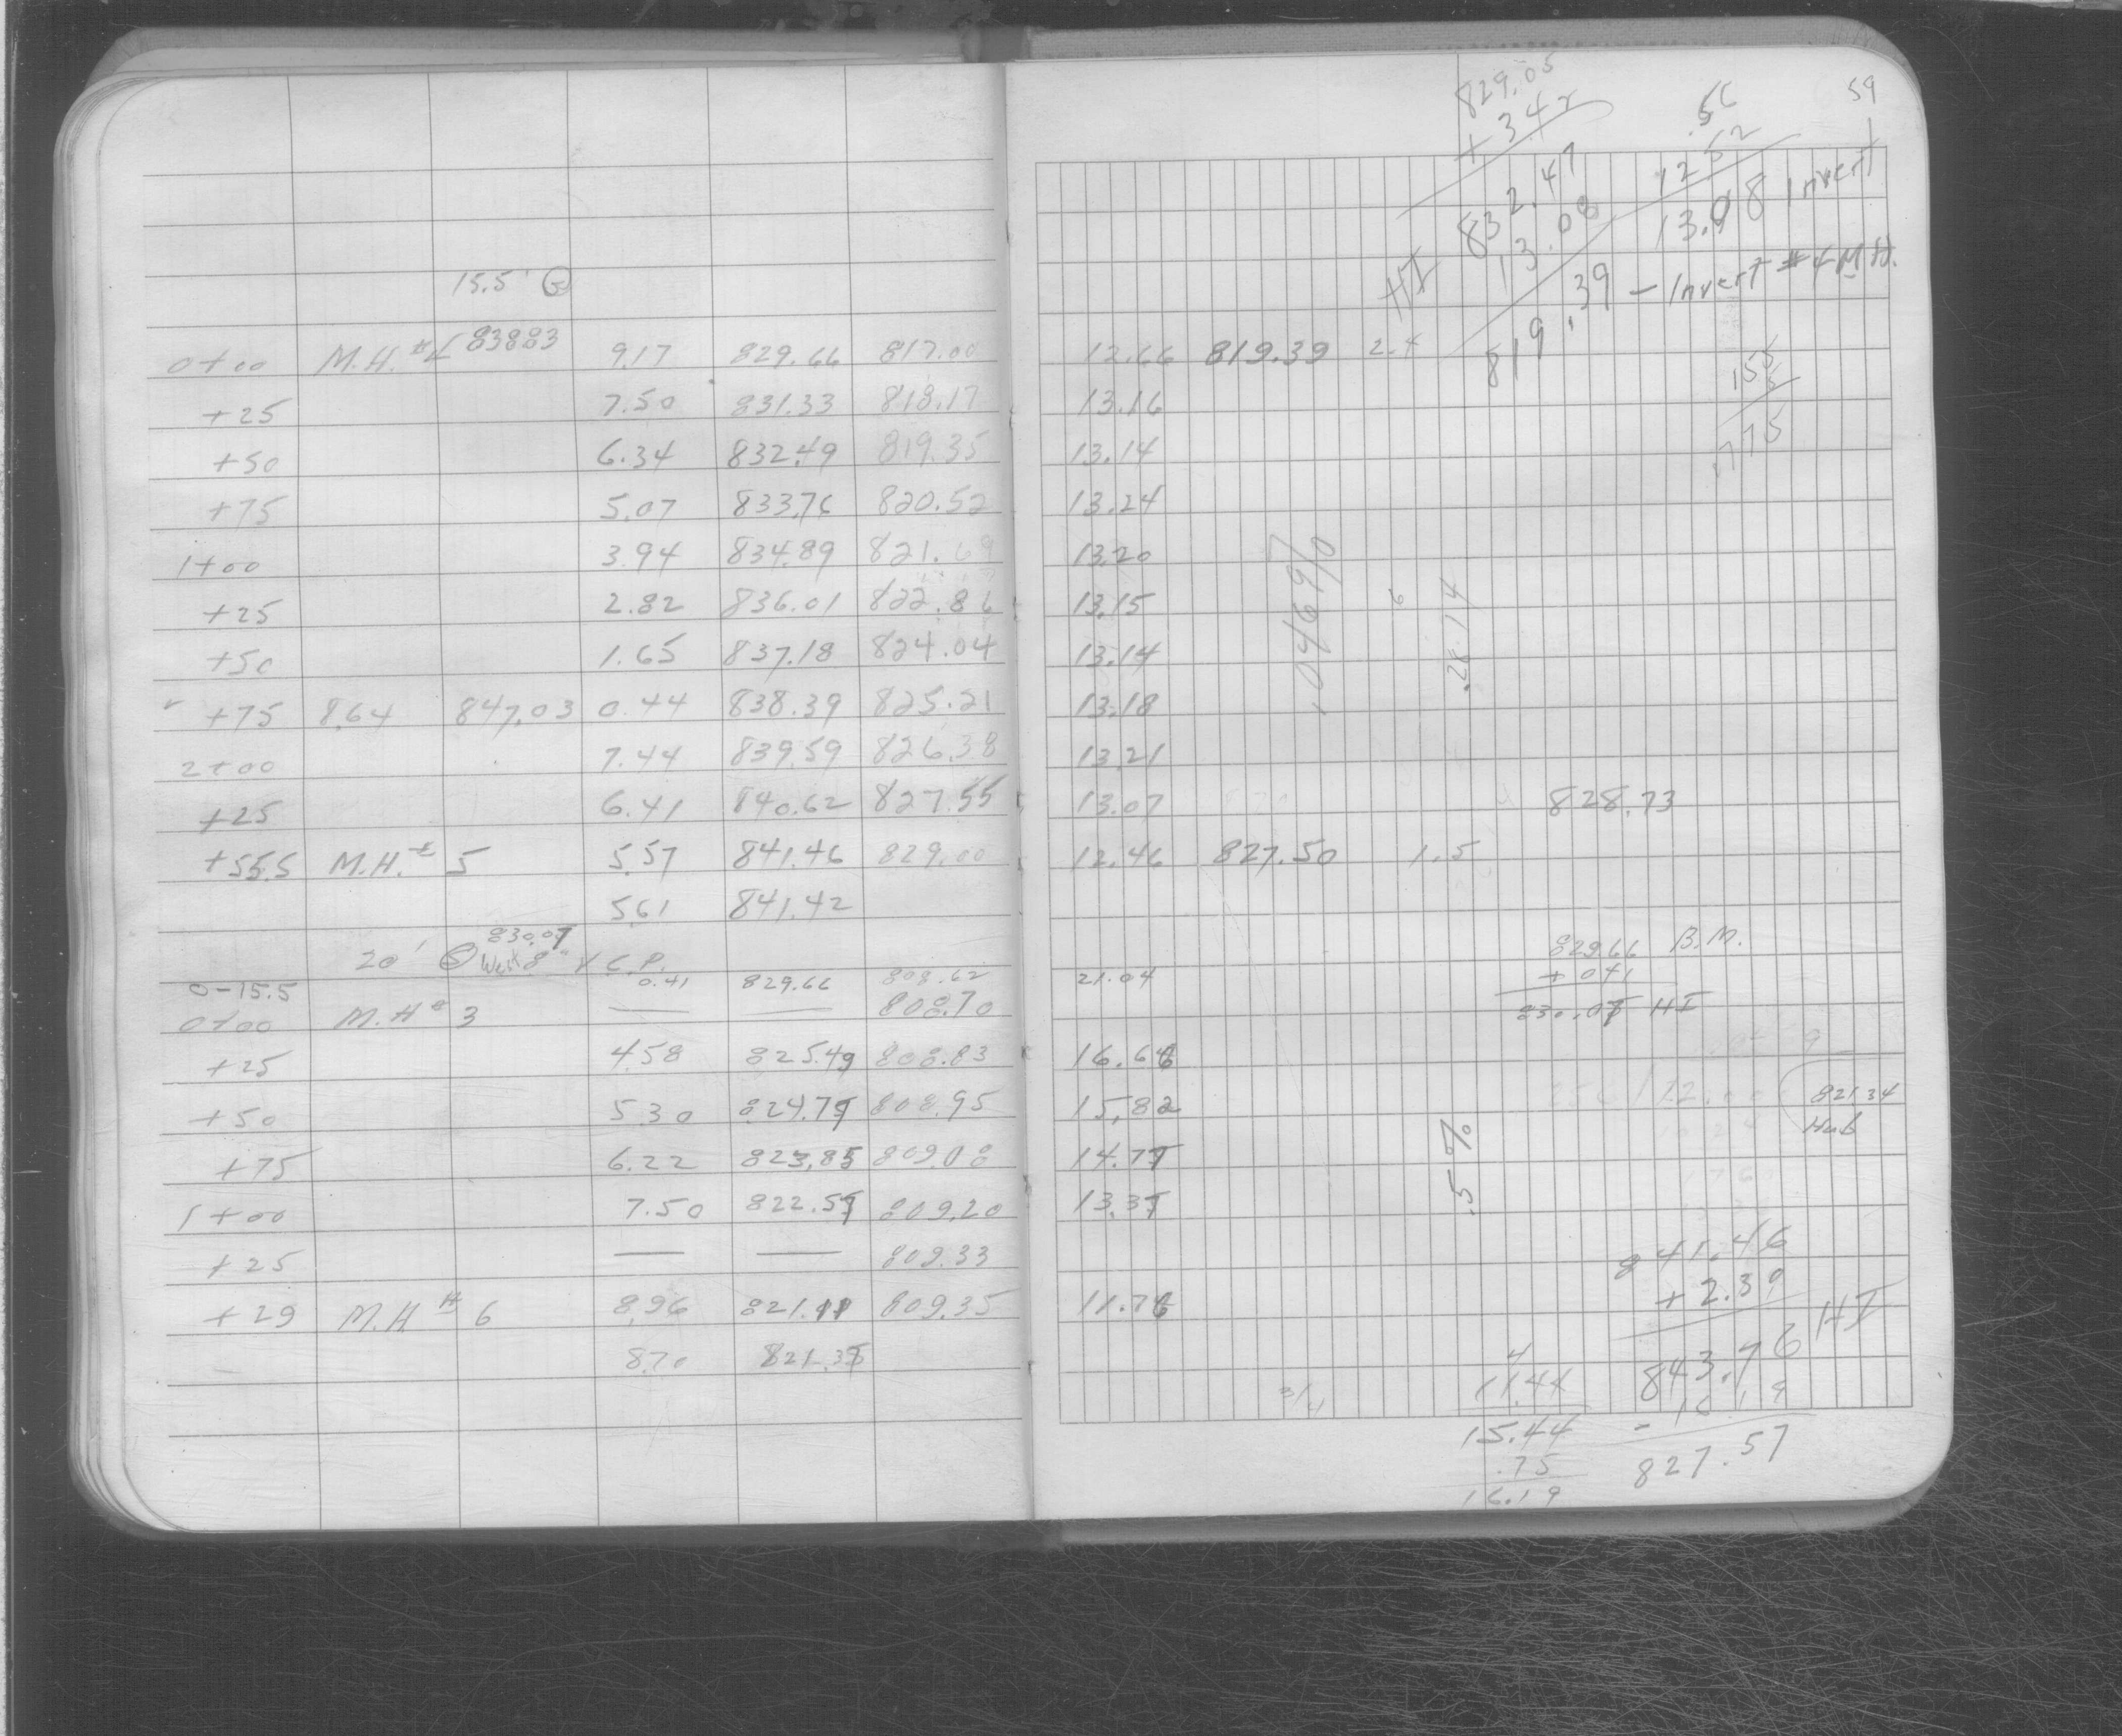 59
15.5' G
0+00 M.H. #4 838.83 9.17 829.66 817.00 12.66 819.39 2.4
+25 7.50 831.33 818.17 13.16
+50 6.34 832.49 819.35 13.14
+75 5.07 833.76 820.52 13.24
1+00 3.94 834.89 821.69 13.20
+25 2.82 836.01 822.86 13.15
+50 1.65 837.18 824.04 13.14
+75 8.64 847.03 0.44 838.39 825.21 13.18
2+00 7.44 839.59 826.38 13.21
+25 6.41 840.62 827.55 13.07 828.73
+55.5 M.H. # 5 5.57 841.46 829.00 12.46 827.50 1.5
5.61 841.42
830.07
20' West 8" V.C.P.
0-15.5 0.41 829.66 808.62 21.04
0+00 M.H # 3 — — 808.70
+25 4.58 825.49 808.83 16.66
+50 5.30 824.77 808.95 15.82
+75 6.22 823.85 809.08 14.77
1+00 7.50 822.57 809.20 13.37
+25 — — 809.33
+29 M.H. # 6 8.96 821.11 809.35 11.76
8.70 821.37
829.05
+ 3 42
HI 832.47
13.08
819.39 – Invert #4 M.H.
.56
12 52
13.08 Invert
155
5
.775
.0469%
6
.28 14
829.66 B.M.
+ 041
830.07 HI
821.34
Hub
.5%
841.46
+ 2.39
843.76 HI
- 16 19
827.57
4
11.44
15.44
.75
16.19
3/4